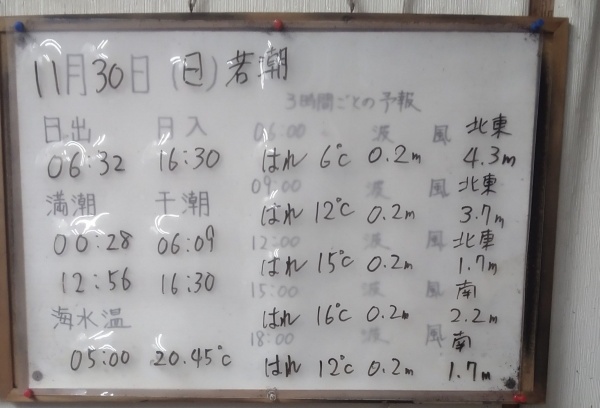 11月30日(日)若潮
3時間ごとの予報
日出 日入
06:32 16:30
満潮 干潮
00:28 06:09
12:56 16:30
海水温
05:00 20.45℃
06:00 波 風 北東
はれ 6℃ 0.2m 4.3m
09:00 波 風 北東
はれ 12℃ 0.2m 3.7m
12:00 波 風 北東
はれ 15℃ 0.2m 1.7m
15:00 波 風 南
はれ 16℃ 0.2m 2.2m
18:00 波 風 南
はれ 12℃ 0.2m 1.7m